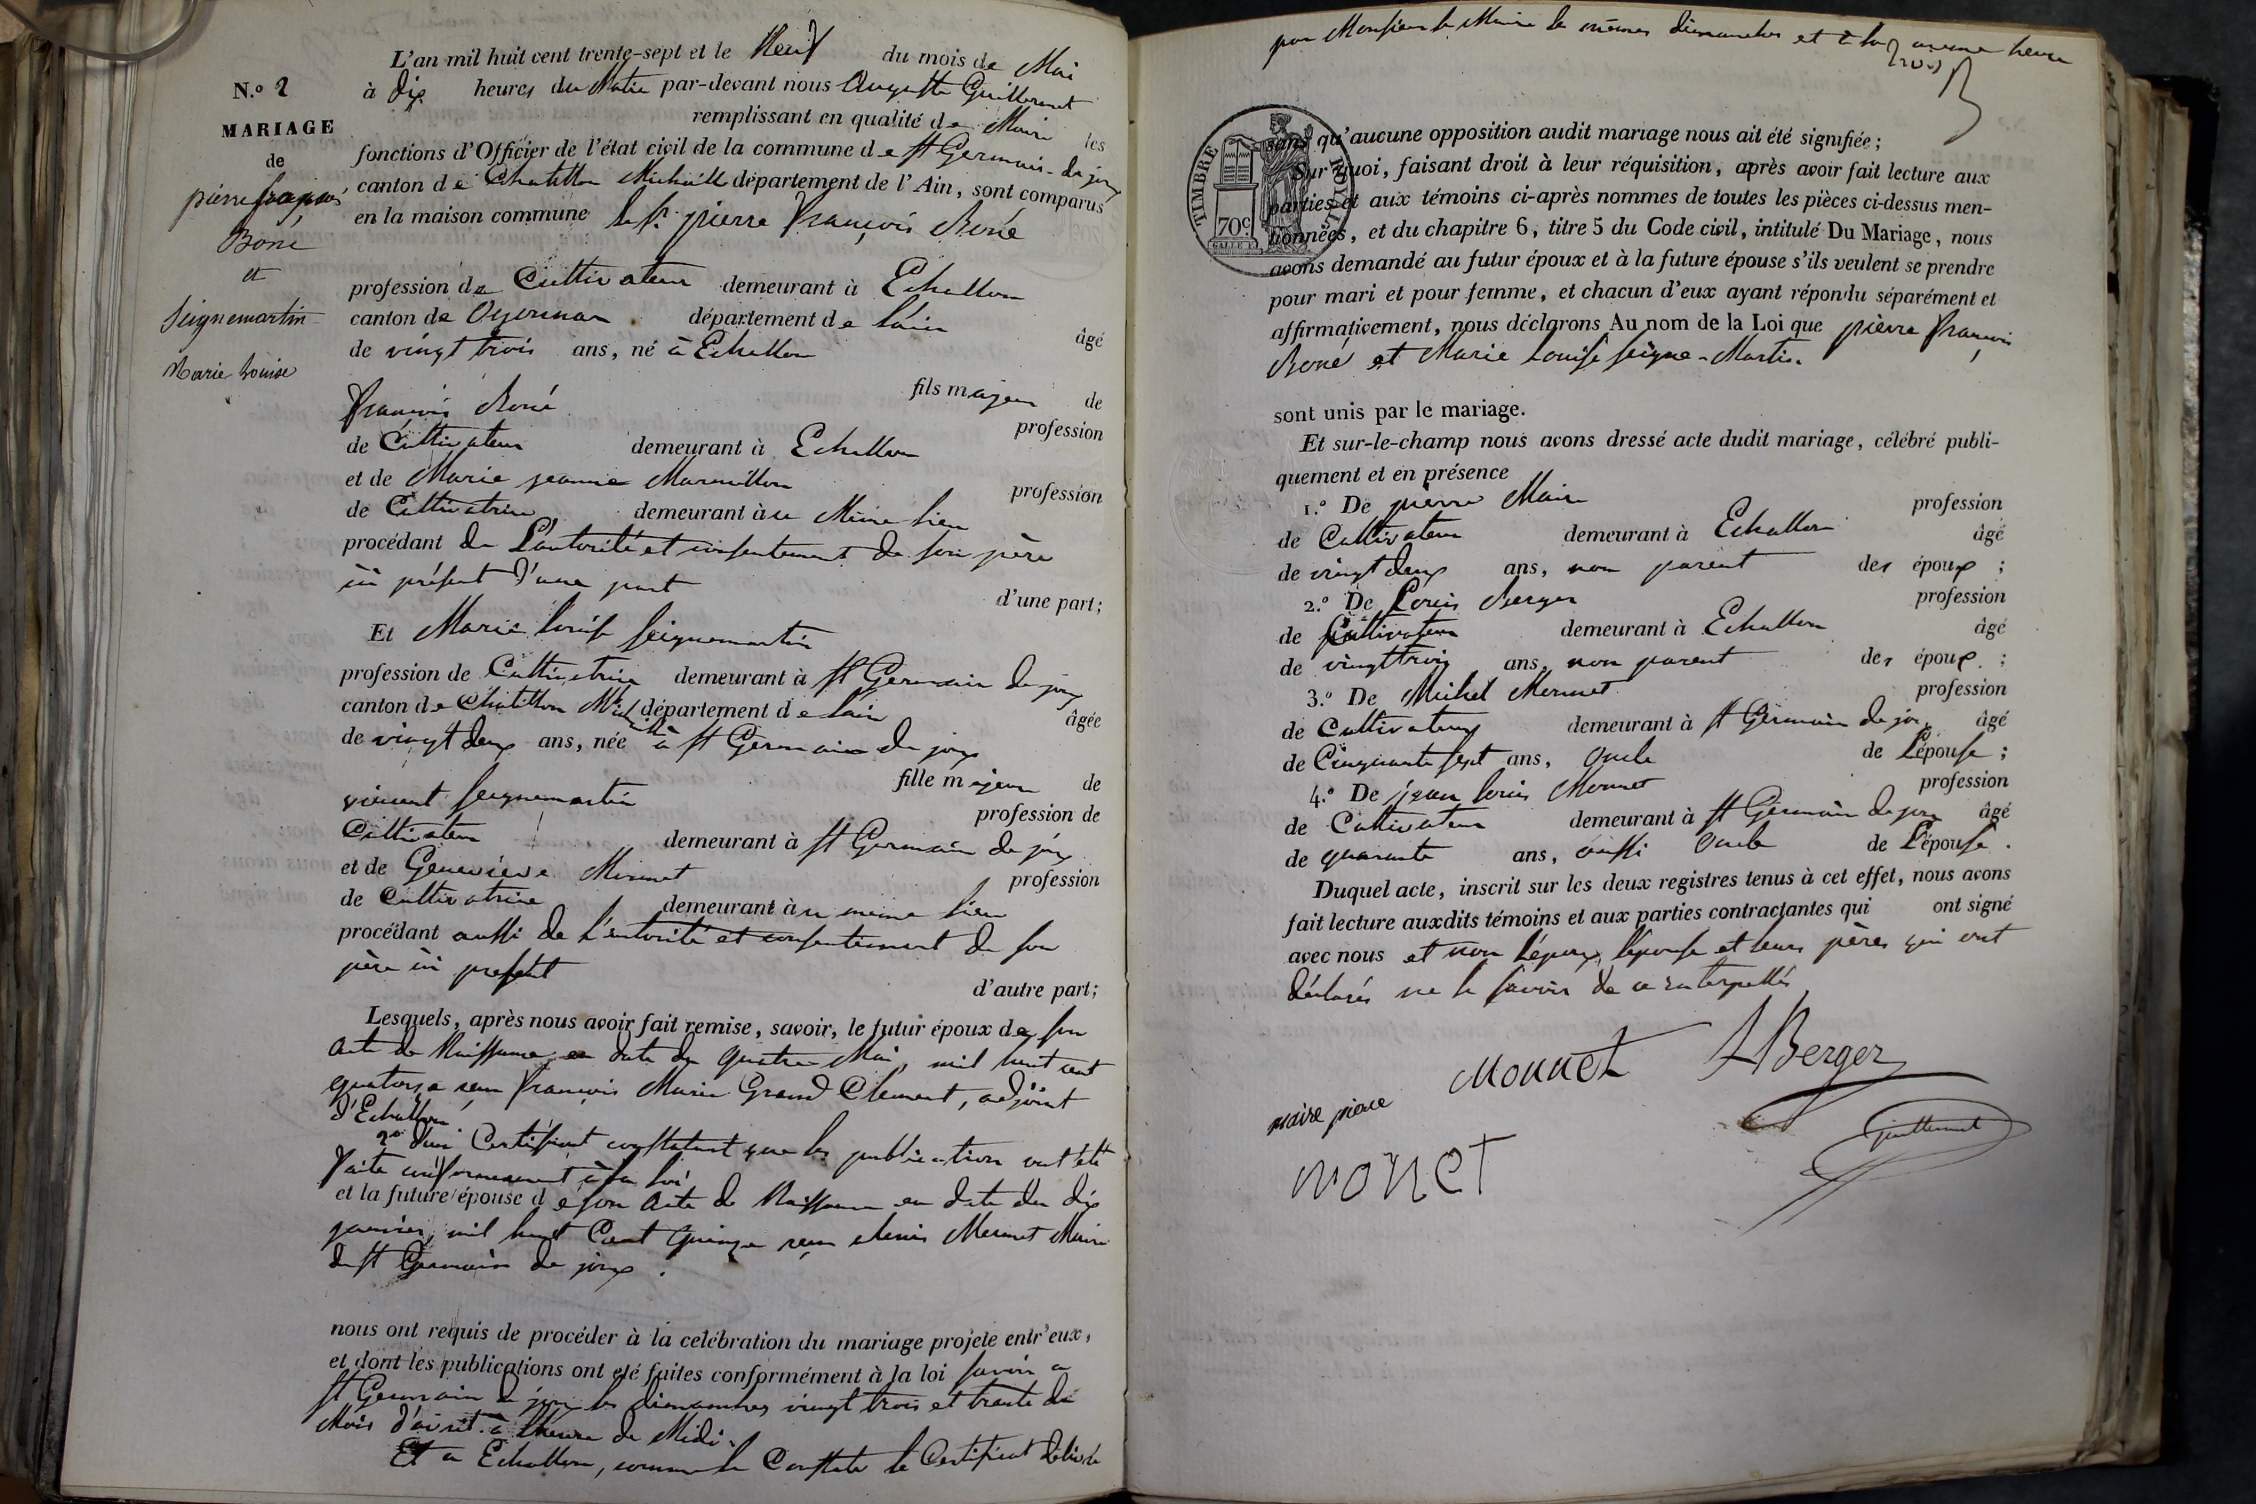 N.o 2
MARIAGE
de
pierre françois
Boné
et
Seignemartin
Marie Louise
L'an mil huit cent trente-sept et le Neuf du mois de Mai
à dix heures du Matin par-devant nous Auguste Guillermet
remplissant en qualité de Maire les
fonctions d'Officier de l'état civil de la commune de St Germain-de joux
canton de Chatillon Michaille département de l'Ain, sont comparus
en la maison commune le Sr. pierre françois Boné
profession de Cultivateur demeurant à Echallon
canton de Oyonnax département de l'ain âgé
de vingt trois ans, né à Echallon
fils majeur de
françois Boné profession
de Cultivateur demeurant à Echallon
et de Marie jeanne Marmillon profession
de Cultivatrice demeurant à u Même lieu
procédant de L'autorité et consentement de son père
ici présent d'une part
d'une part;
Et Marie louise Seignemartin
profession de Cultivatrice demeurant à St Germain de joux
canton de Chatillon Michaille département de lain âgée
de vingt deux ans, née à St Germain de joux
fille majeure de
vincent Seignemartin profession de
Cultivateur demeurant à St Germain de joux
et de Geneviève Mermet profession
de Cultivatrice demeurant à u même lieu
procédant aussi de L'autorité et consentement de son
père ici présent
d'autre part;
Lesquels, après nous avoir fait remise, savoir, le futur époux de son
acte de Naissance en date du quatre Mai, mil huit cent
quatorze reçu françois Marie Grand Clement, adjoint
d'Echallon
2o d'un Certificat constatant que les publication ont été
faite conformément à la loi
et la future épouse de son acte de Naissance en date du dix
janvier, mil huit Cent quinze reçu denis Mermet Maire
de St Germain de joux.
nous ont requis de procéder à la célébration du mariage projeté entr'eux,
et dont les publications ont été faites conformément à la loi savoir a
St Germain de joux les dimanches vingt trois et trente du
Mois d'avril à l'heure de Midi.
Et a Echallon, comme le Constate le Certificat délivré
par Monsieur le Maire les mêmes dimanches et à la même heure
sans qu'aucune opposition audit mariage nous ait été signifiée;
Sur quoi, faisant droit à leur réquisition, après avoir fait lecture aux
parties et aux témoins ci-après nommés de toutes les pièces ci-dessus men-
tionnées, et du chapitre 6, titre 5 du Code civil, intitulé Du Mariage, nous
avons demandé au futur époux et à la future épouse s'ils veulent se prendre
pour mari et pour femme, et chacun d'eux ayant répondu séparément et
affirmativement, nous déclarons Au nom de la Loi que pierre françois
Boné et Marie Louise Seigne-Martin
TIMBRE ROYAL
70c
sont unis par le mariage.
Et sur-le-champ nous avons dressé acte dudit mariage, célébré publi-
quement et en présence
1.o De pierre Maire profession
de Cultivateur demeurant à Echallon âgé
de vingt deux ans, non parent des époux;
2.o De Louis Berger profession
de Cultivateur demeurant à Echallon âgé
de vingt trois ans, non parent des époux;
3.o De Michel Mermet profession
de Cultivateur demeurant à St Germain de joux âgé
de Cinquante sept ans, oncle de L'épouse;
4.o De jean louis Monnet profession
de Cultivateur demeurant à St Germain de joux âgé
de quarante ans, aussi oncle de L'épouse.
Duquel acte, inscrit sur les deux registres tenus à cet effet, nous avons
fait lecture auxdits témoins et aux parties contractantes qui ont signé
avec nous et non L'époux, l'épouse et leurs pères qui ont
déclarés ne le savoir de ce enterpellés
Monnet LBerger
maire pierre
Guillermet
monet